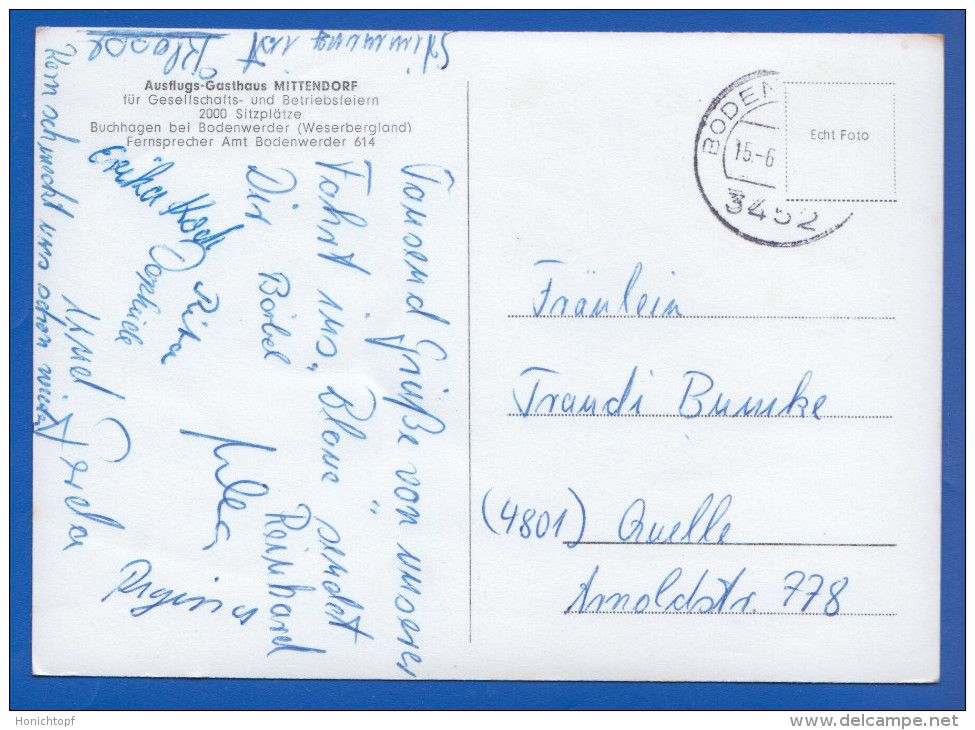 Ausflugs-Gasthaus MITTENDORF
für Gesellschafts- und Betriebsfeiern
2000 Sitzplätze
Buchhagen bei Bodenwerder (Weserbergland)
Fernsprecher Amt Bodenwerder 614
Tausend Grüße von unserer
Fahrt ins "Blaue" sendet
Dir Bärbel Reinhard
Erika Koch
Rita
und Gerda
Stimmung ist
Klasse
Korn schmeckt uns schon wieder
BODEN
15.-6
3452
Echt Foto
Fräulein
Traudi Bumke
(4801) Quelle
Arnoldstr. 778
Honichtopf
www.delcampe.net